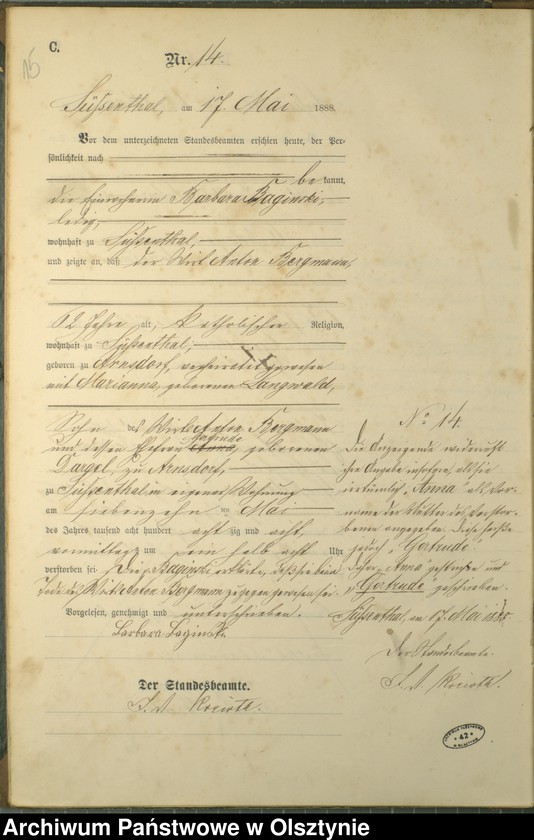 C.
15
Nr. 14.
Süssenthal, am 17. Mai 1888.
Vor dem unterzeichneten Standesbeamten erschien heute, der Per-
sönlichkeit nach
be kannt,
die Einwohnerin Barbara Baginski,
ledig,
wohnhaft zu Süssenthal,
und zeigte an, daß der Wirt Anton Bergmann,
62 Jahre alt, katholischer Religion,
wohnhaft zu Süssenthal,
geboren zu Arnsdorf, verheiratet gewesen
mit Marianna, geborenen Langwald,
Sohn des Wirts Anton Bergmann
und dessen Ehefrau Anna, geborenen
Dargel, zu Arnsdorf,
zu Süssenthal in eigener Wohnung
am siebenzehn ten Mai
des Jahres tausend acht hundert acht zig und acht,
vormittags um ein halb acht Uhr
verstorben sei. Die Baginski erklärte, daß sie beim
Tode des Wirts Anton Bergmann zugegen gewesen sei.
Vorgelesen, genehmigt und unterschrieben.
Barbara Baginski.
Der Standesbeamte.
No 14.
Die Anzeigende widerruft
ihre Angabe insofern, als sie
irrtümlich "Anna" als Vor-
name der Mutter des Verstor-
benen angegeben. Diese heißt
jedoch "Gertrude" und
"Anna" gestrichen und
"Gertrude" geschrieben.
Süssenthal, am 17. Mai 1888
Der Standesbeamte.
ARCHIWUM PAŃSTWOWE
* 42 *
W OLSZTYNIE
Archiwum Państwowe w Olsztynie